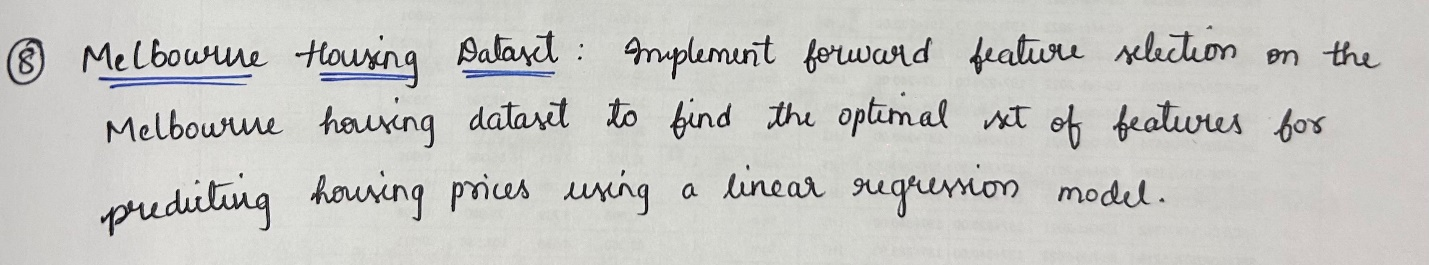 ⑧ Melbourne Housing Dataset : Implement forward feature selection on the
Melbourne housing dataset to find the optimal set of features for
predicting housing prices using a linear regression model.